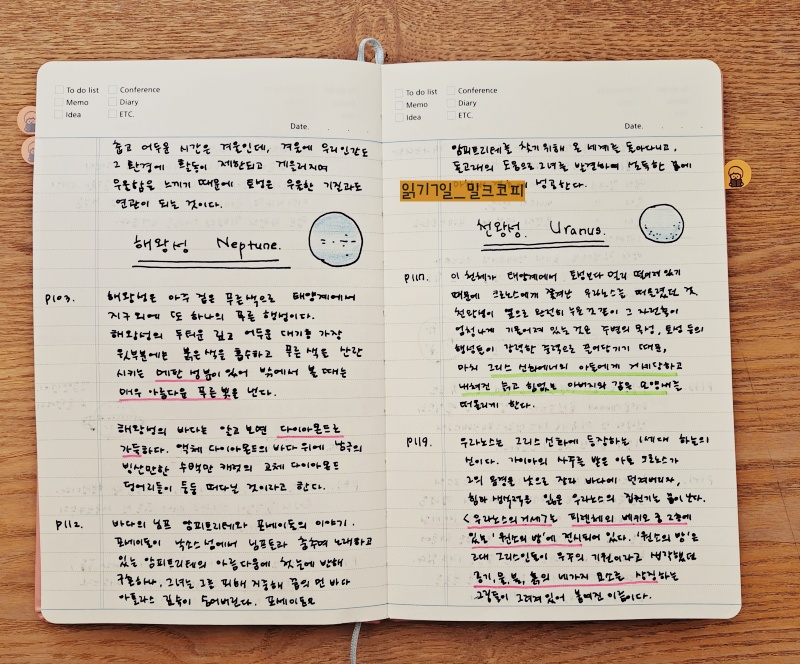 To do list
Conference
Memo
Diary
Idea
ETC.
Date.
춥고 어두운 시간은 겨울인데, 겨울에 우리 인간도
그 환경에 활동이 제한되고 게을러지며
우울함을 느끼기 때문에 토성은 우울한 기질과도
연관이 되는 것이다.
해왕성 Neptune.
P103.
해왕성은 아주 짙은 푸른색으로 태양계에서
지구 외에 또 하나의 푸른 행성이다.
해왕성의 두터운 깊고 어두운 대기층 가장
윗부분에는 붉은색을 흡수하고 푸른색을 산란
시키는 메탄 성분이 있어 밖에서 볼 때는
매우 아름다운 푸른 빛을 낸다.
해왕성의 바다는 알고 보면 다이아몬드로
가득하다. 액체 다이아몬드의 바다 위에 남극의
빙산만한 수백만 캐럿의 고체 다이아몬드
덩어리들이 둥둥 떠다닐 것이라고 한다.
P112.
바다의 님프 암피트리테와 포세이돈의 이야기.
포세이돈이 낙소스 섬에서 님프들과 춤추며 노래하고
있는 암피트리테의 아름다움에 첫눈에 반해
구혼하나, 그녀는 그를 피해 지중해 끝의 먼 바다
아틀라스 깊숙이 숨어버린다. 포세이돈은
To do list
Conference
Memo
Diary
Idea
ETC.
Date.
암피트리테를 찾기 위해 온 세계를 돌아다니고,
돌고래의 도움으로 그녀를 발견하여 설득한 끝에
읽기7일_밀크코피
성공한다.
천왕성. Uranus.
P117.
이 천체가 태양계에서 토성보다 멀리 떨어져 있기
때문에 크로노스에게 쫓겨난 우라노스를 떠올렸던 것.
천왕성이 옆으로 완전히 누운 것 같이 그 자전축이
엄청나게 기울어져 있는 것은 주변의 목성, 토성 등의
행성들이 강력한 중력으로 끌어당기기 때문,
마치 그리스 신화에서의 아들에게 거세당하고
내쳐진 늙고 힘없는 아버지와 같은 모양새를
떠올리게 한다.
P119.
우라노스는 그리스 신화에 등장하는 1세대 하늘의
신이다. 가이아의 사주를 받은 아들 크로노스가
그의 음경을 낫으로 잘라 바다에 던져버리자,
힘과 생식력을 잃은 우라노스의 집권기는 끝이 난다.
<우라노스의 거세>는 피렌체의 베키오 궁 2층에
있는 '원소의 방'에 전시되어 있다. '원소의 방'은
고대 그리스인들이 우주의 기원이라고 생각했던
공기, 물, 불, 흙의 네가지 요소를 상징하는
그림들이 그려져 있어 붙여진 이름이다.